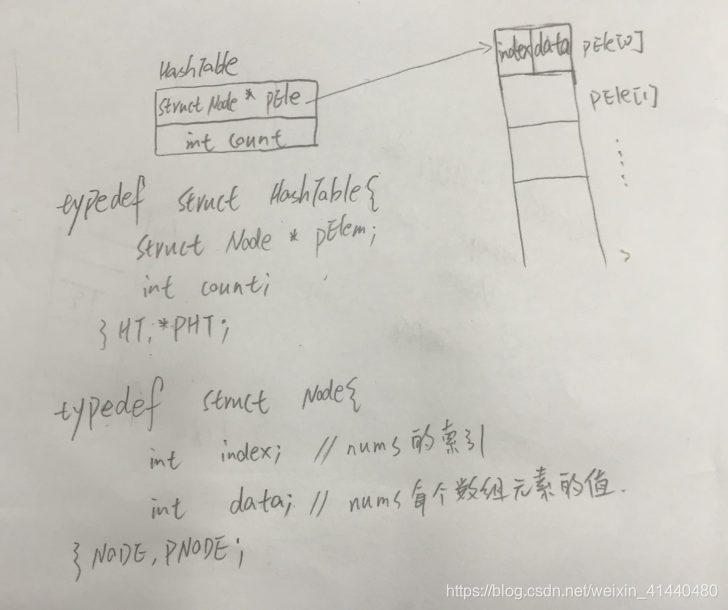 HashTable
struct Node * pEle
int count
index data pEle[0]
pEle[1]
typedef struct HashTable{
struct Node * pElem;
int count;
} HT, *PHT;
typedef struct Node{
int index; // nums 的索引
int data; // nums 每个数组元素的值.
} NODE, PNODE;
https://blog.csdn.net/weixin_41440480